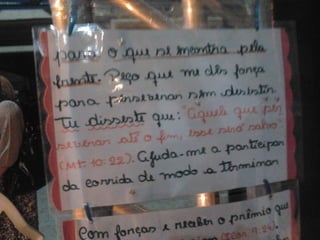 para o que se encontra pela
frente. Peço que me dês força
para perseverar sem desistir.
Tu disseste que: "Aquele que per
severar até o fim, esse será salvo".
(Mt. 10:22). Ajuda-me a participar
da corrida de modo a terminar
Com forças e receber o prêmio que